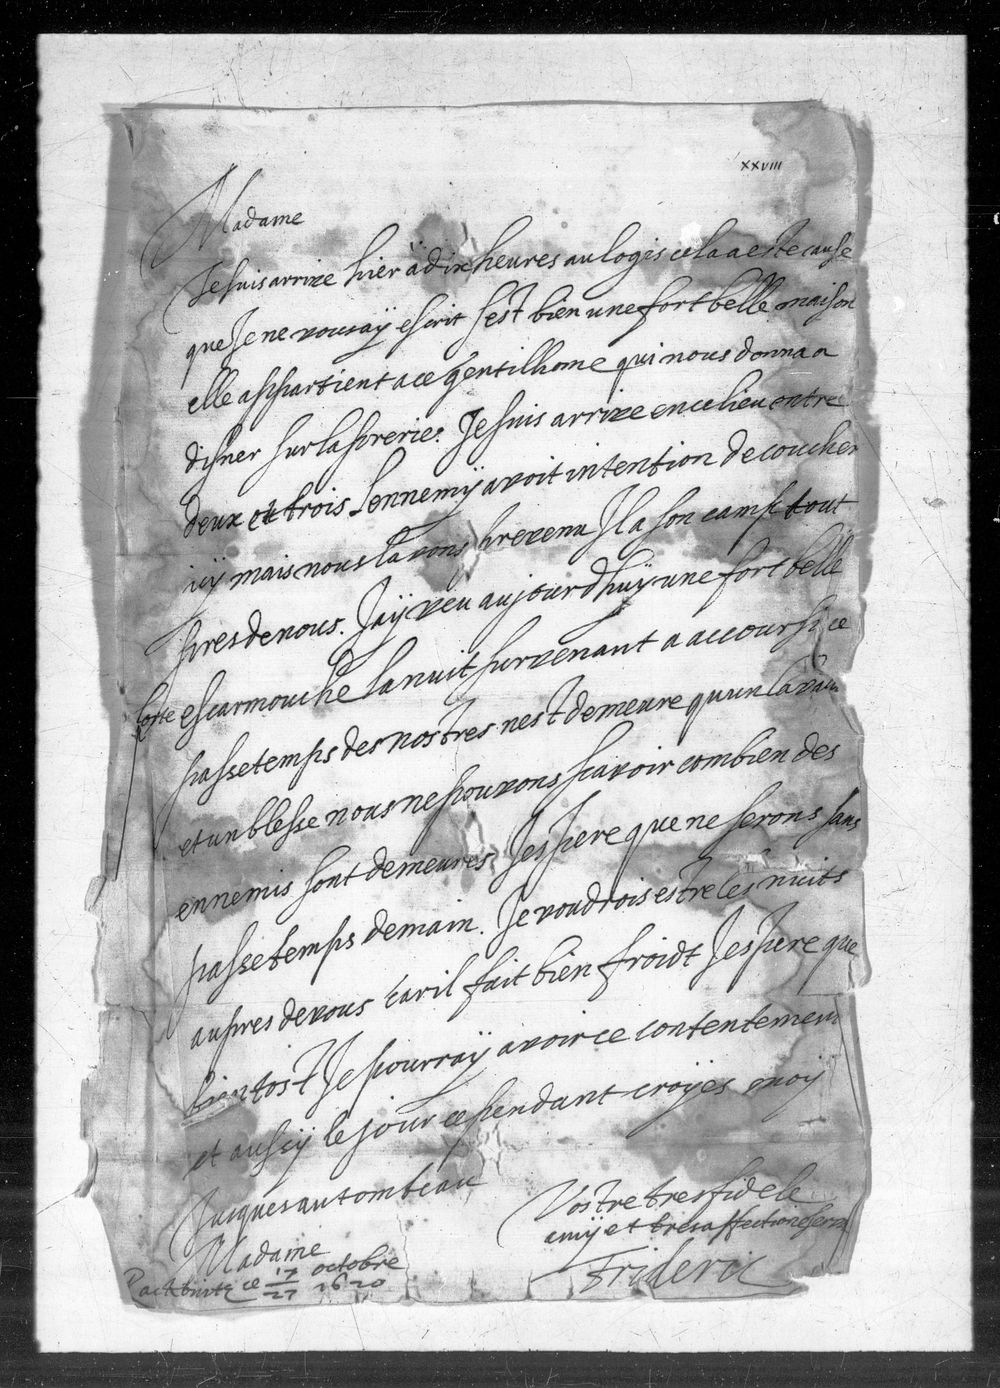 XXVIII
Madame
Je suis arrive hier a dix heures au logis cela a este cause
que Je ne vous aÿ escrit sest bien une fort belle maison
elle appartient a ce gentilhome qui nous donna a
disner sur la prerie. Je suis arrive en ce lieu entre
deux et trois Lennemÿ avoit intention de coucher
icÿ mais nous lavons prevenu Il a son camp tout
pres de nous. Jaÿ veu aujourdhuÿ une fort belle
escarmouche la nuit survenant a accoursi ce
passetemps des nostres nest demeure quun
et un blesse nous ne pouvons scavoir combien des
ennemis sont demeures Jespere que ne serons sans
passetemps demain. Je voudrois estre les nuits
aupres de vous car il fait bien froidt Jespere que
bien tost Je pourraÿ avoir ce contentement
et aussÿ le jour cependant croÿes moÿ
Jusques au tombeau
Madame
Vostre tres fidele
amÿ et tres affectione
Frideric
ce 17/27 octobre
1620